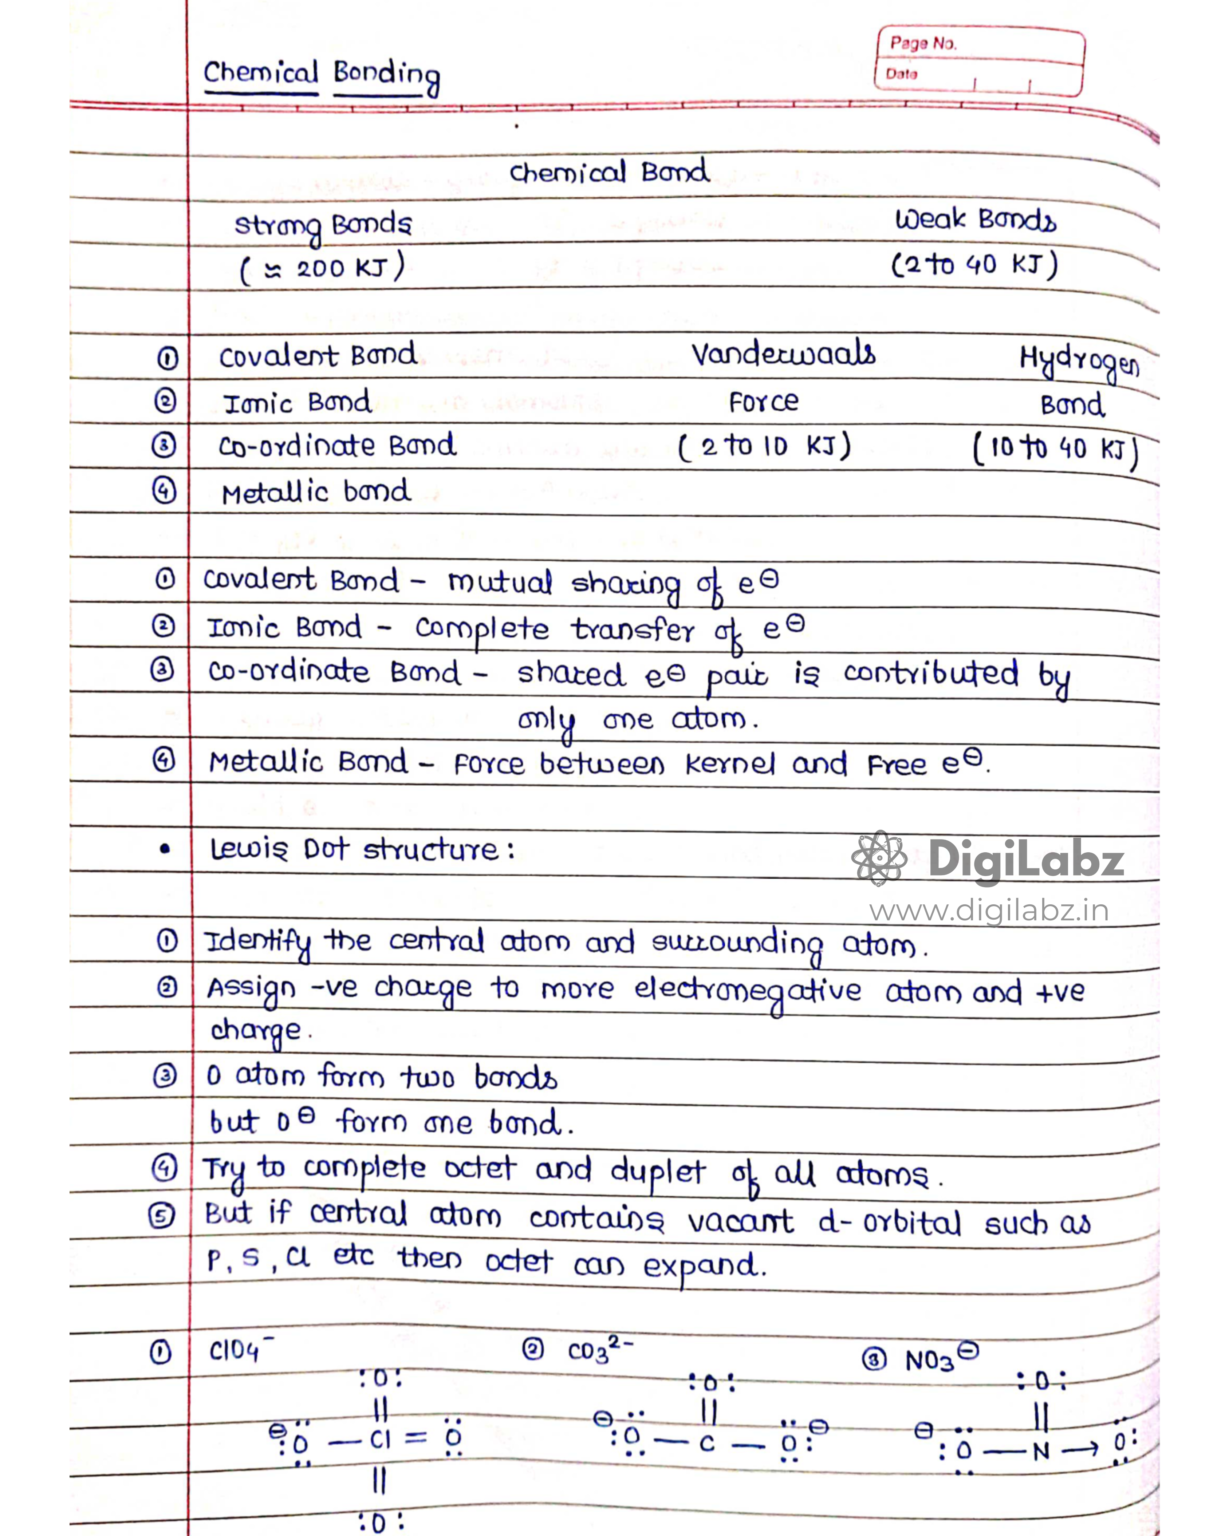 Page No.
Date
Chemical Bonding
Chemical Bond
Strong Bonds
Weak Bonds
(≈ 200 KJ)
(2 to 40 KJ)
① Covalent Bond
Vanderwaals
Hydrogen
② Ionic Bond
Force
Bond
③ Co-ordinate Bond
(2 to 10 KJ)
(10 to 40 KJ)
④ Metallic bond
① Covalent Bond - mutual sharing of e⊖
② Ionic Bond - Complete transfer of e⊖
③ Co-ordinate Bond - shared e⊖ pair is contributed by
only one atom.
④ Metallic Bond - Force between Kernel and Free e⊖.
• Lewis Dot structure:
DigiLabz
www.digilabz.in
① Identify the central atom and surrounding atom.
② Assign -ve charge to more electronegative atom and +ve
charge.
③ O atom form two bonds
but O⊖ form one bond.
④ Try to complete octet and duplet of all atoms.
⑤ But if central atom contains vacant d-orbital such as
P, S, Cl etc then octet can expand.
① ClO4⁻
② CO3²⁻
③ NO3⊖
:O:
:O:
:O:
||
||
||
⊖:O — Cl = O
⊖:O — C — O:⊖
⊖:O — N → O:
||
:O: